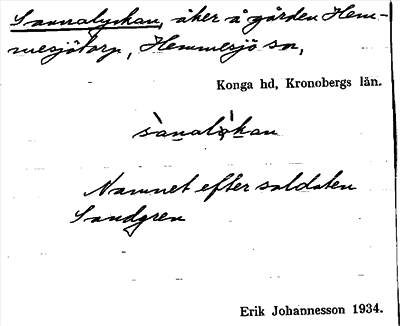 Sannalyckan, åker å gården Hem-
mesjötorp, Hemmesjö sn,
Konga hd, Kronobergs län.
Namnet efter soldaten
Sandgren
Erik Johannesson 1934.